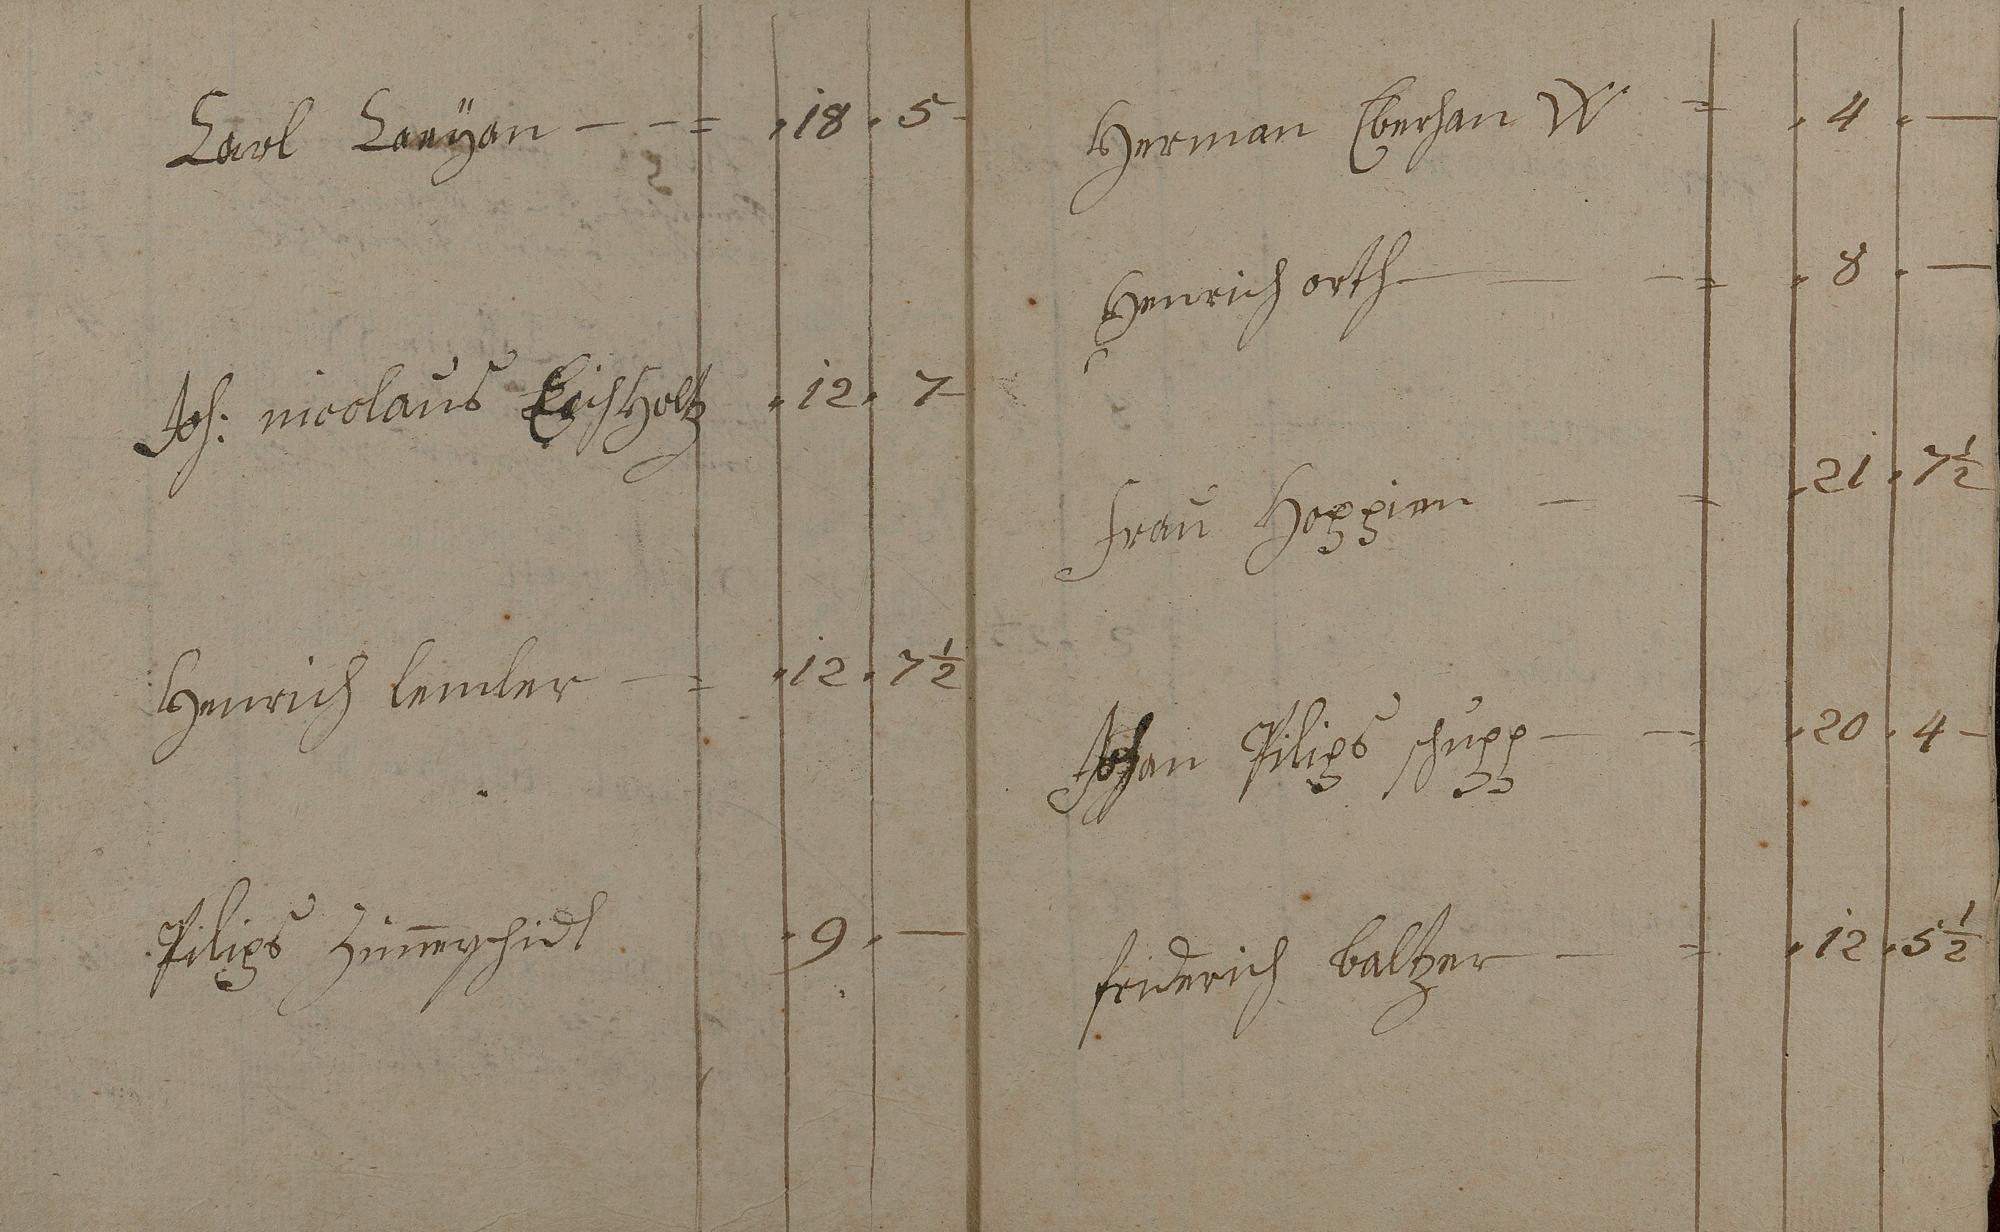 Carl Laryan — — = . 18 . 5 -
Joh: nicolaus EichHoltz . 12 . 7 -
Henrich lemler — = . 12 . 7 1/2
Pilips . 9 . —
Herman Eberhan W = . 4 . —
Henrich orth — — — = . 8 . —
frau Hoppien — - . 21 . 7 1/2
Johan Pilips schupp — — = . 20 . 4 -
friderich baltzer — = . 12 . 5 1/2